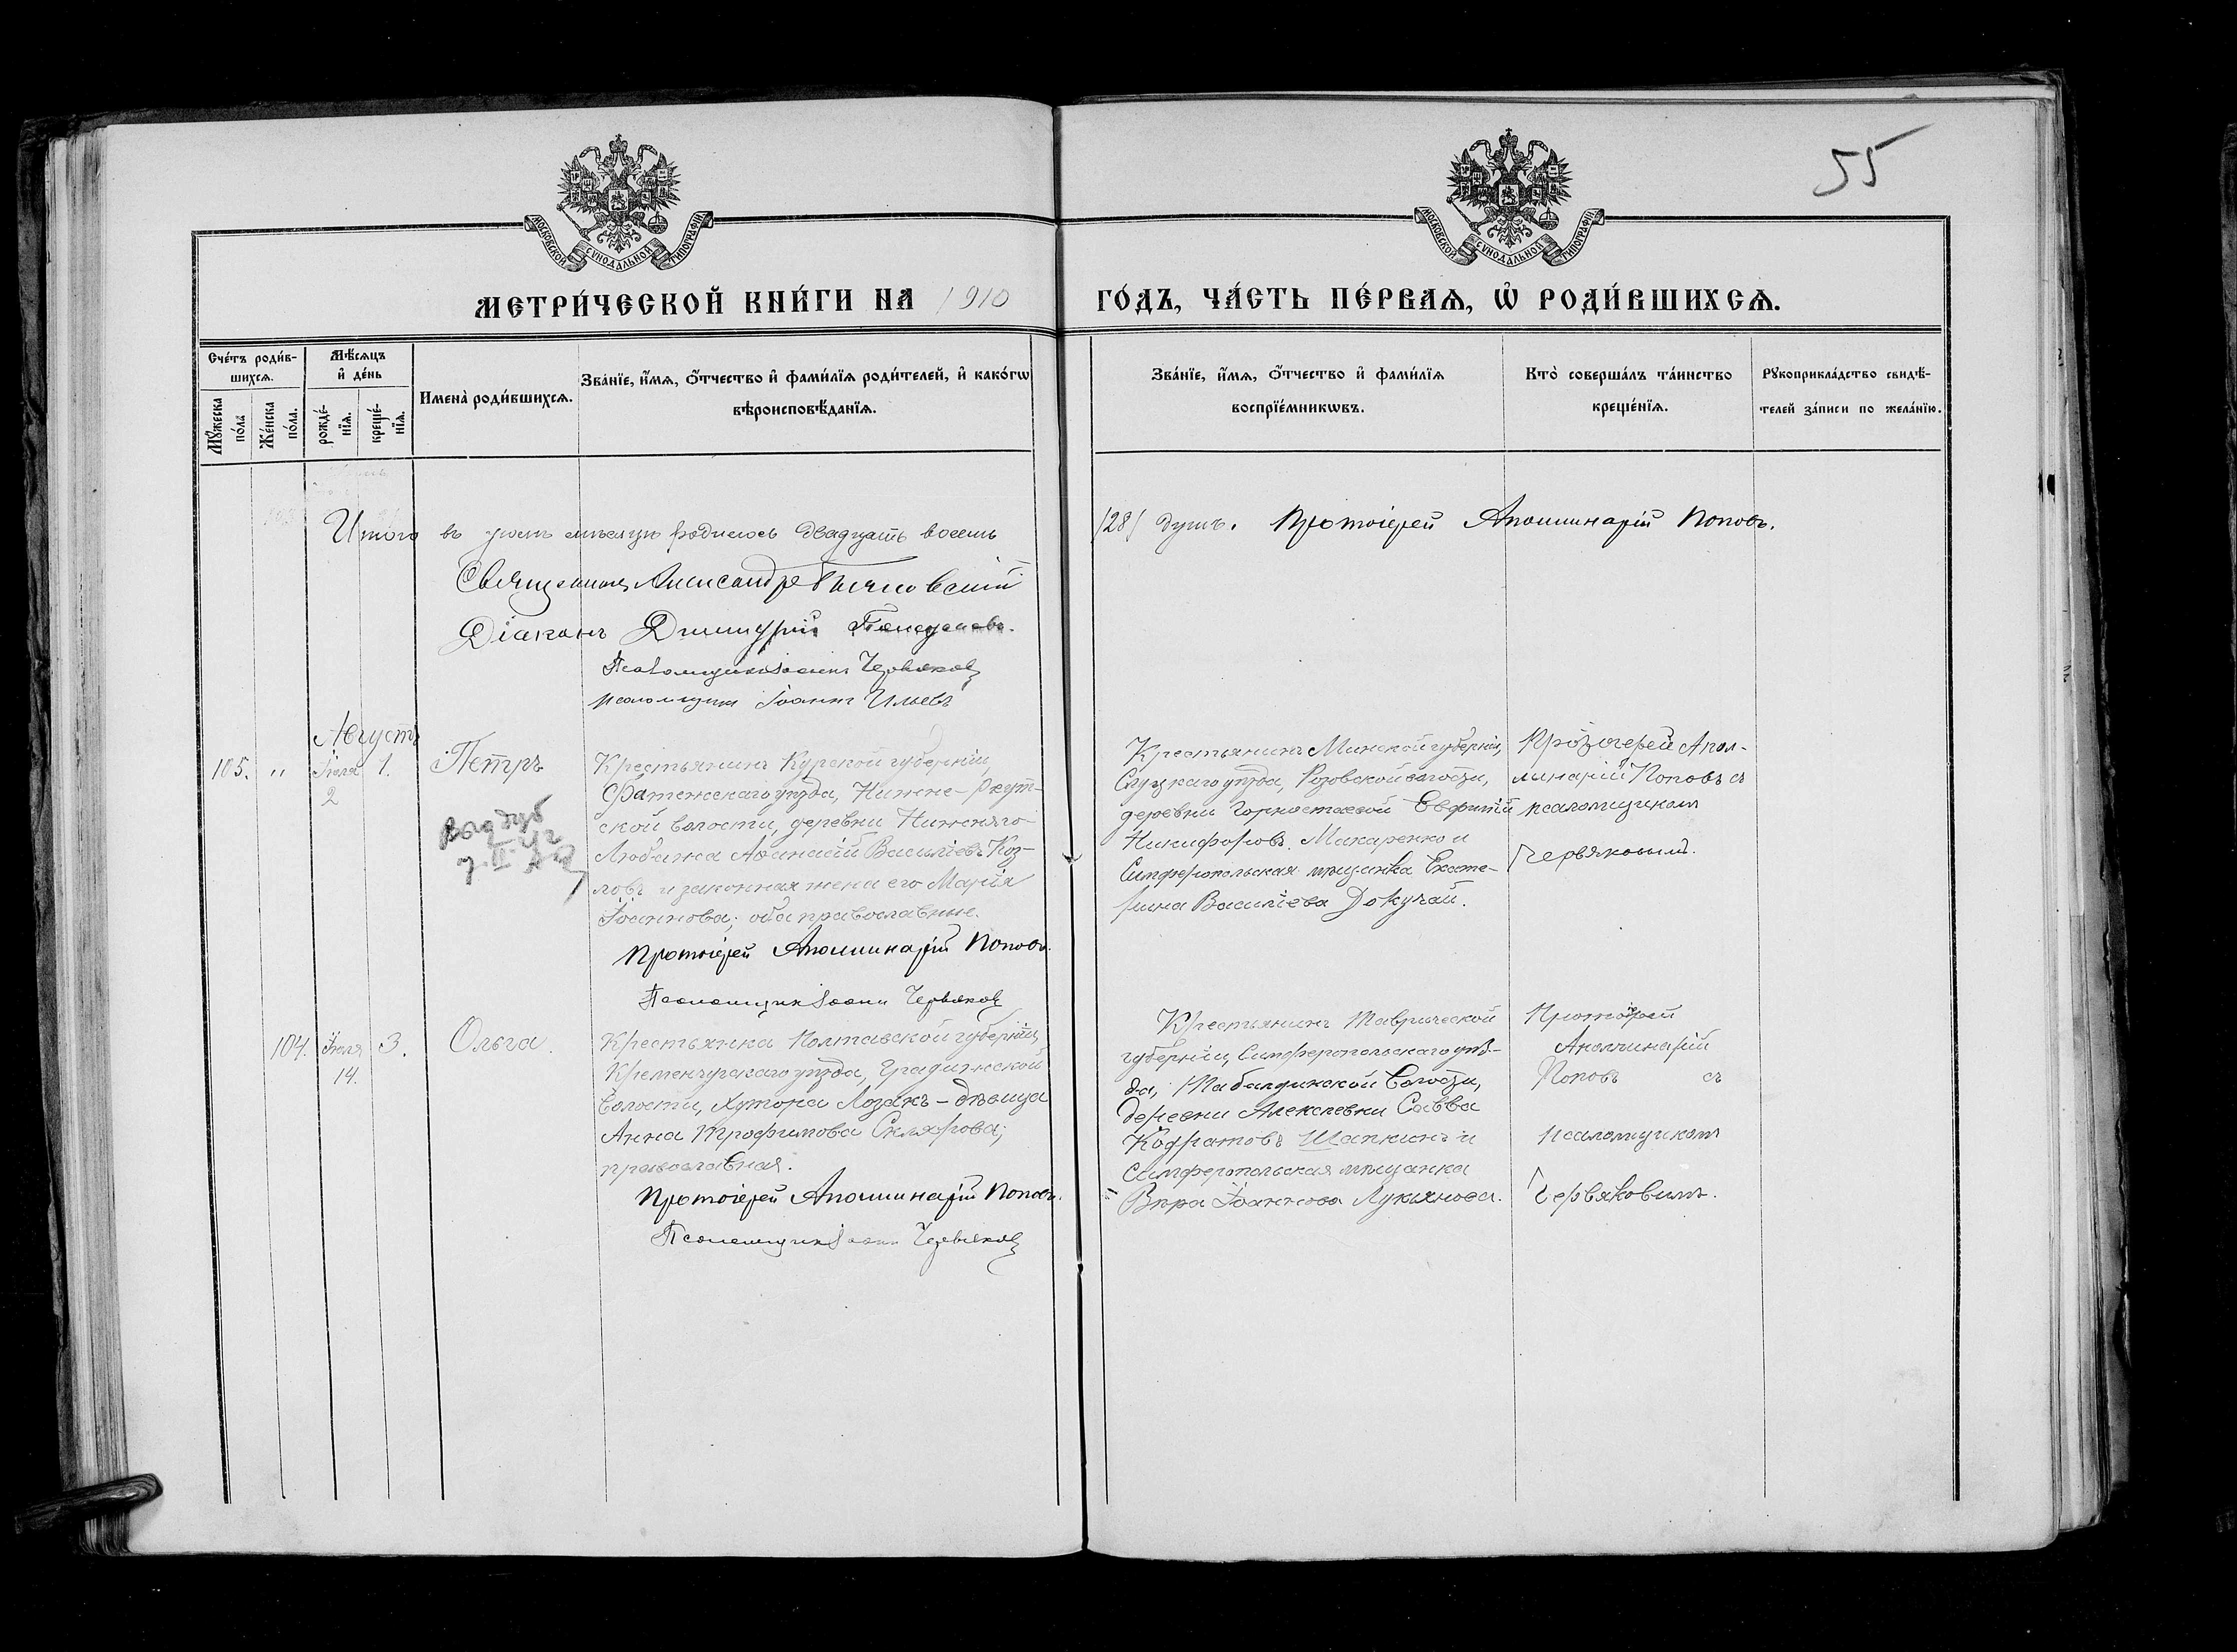 55
МОСКОВСКОЙ СѴНОДАЛЬНОЙ ТИПОГРАФІИ
МОСКОВСКОЙ СѴНОДАЛЬНОЙ ТИПОГРАФІИ
МЕТРИ́ЧЕСКОЙ КНИ́ГИ НА 1910 ГО́ДЪ, ЧА́СТЬ ПЕ́РВАѦ, Ѡ҆ РОДИ́ВШИХСѦ.
Сче́тъ роди́в-
шихсѧ.
Мꙋ́жеска по́ла
Же́нска по́ла.
Мѣ́сѧцъ и҆ де́нь
рожде́-
нїѧ.
креще́-
нїѧ.
Имена̀ роди́вшихсѧ.
Зва́нїе, и҆́мѧ, ѻ҆́тчество и҆ фами́лїѧ роди́телей, и҆ како́гѡ
вѣроисповѣ́данїѧ.
Зва́нїе, и҆́мѧ, ѻ҆́тчество и҆ фами́лїѧ
воспрїе́мникѡвъ.
Кто̀ соверша́лъ та́инство
креще́нїѧ.
Рꙋкоприкла́дство свидѣ́-
телей за́писи по жела́нїю.
Итого въ іюлѣ мѣсяцѣ родилось двадцать восемь
/28/ душъ. Протоіерей Аполлинарій Поповъ.
Священникъ Александръ
Діаконъ Димитрій
Псаломщикъ Іоаннъ Червяковъ
псаломщикъ Іоаннъ Ильевъ
Августъ
105. " Іюля 2 1. Петръ
Крестьянинъ Курской губерніи,
Фатежскаго уѣзда, Нижне-Реут-
ской волости, деревни Нижняго
Любажа Аѳанасій Васильевъ Коз-
ловъ и законная жена его Марія
Іоаннова; оба православные.
Протоіерей Аполлинарій Поповъ.
Псаломщикъ Іоаннъ Червяковъ
Крестьянинъ Минской губерніи,
Слуцкаго уѣзда, волости,
деревни Горностаевой Евфимій
Никифоровъ Макаренко и
Симферопольская мѣщанка Екате-
рина Васильева Докучай.
Протоіерей Апол-
линарій Поповъ съ
псаломщикомъ
Червяковымъ.
104. Іюля 14. 3. Ольга
Крестьянка Полтавской губерніи,
Кременчугскаго уѣзда, Градижской
волости, хутора Лозакъ - дѣвица
Анна Трофимова Склярова;
православная.
Протоіерей Аполлинарій Поповъ.
Псаломщикъ Іоаннъ Червяковъ
Крестьянинъ Таврической
губерніи, Симферопольскаго уѣз-
да, Табулдинской волости,
деревни Алексеевки Савва
Кодратовъ Шапкинъ и
симферопольская мѣщанка
Вѣра Іоаннова Лукьянова.
Протоіерей
Аполлинарій
Поповъ съ
псаломщикомъ
Червяковымъ.